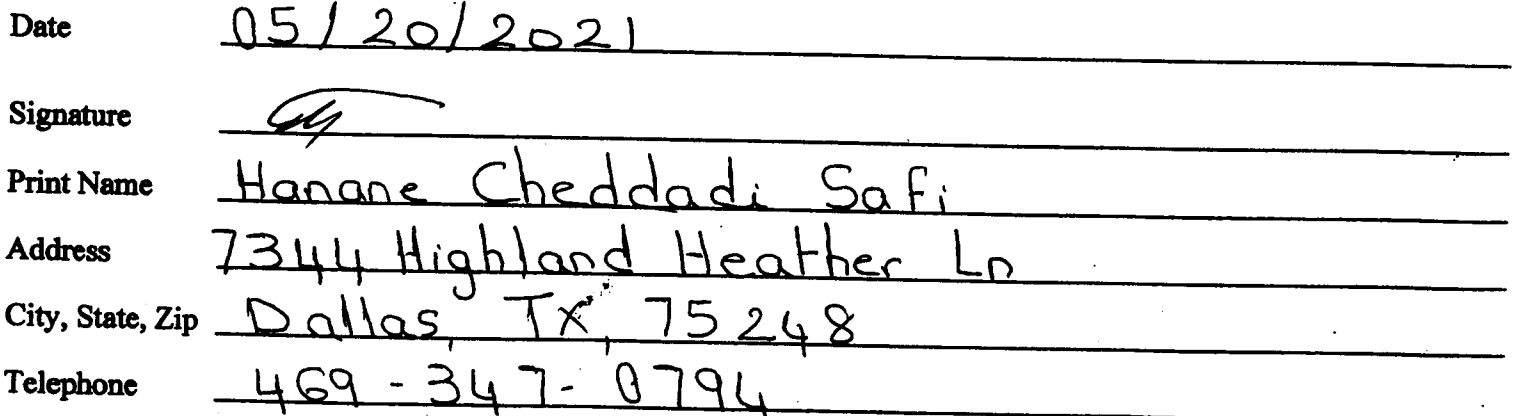 Date 05/20/2021
Signature
Print Name Hanane Cheddadi Safi
Address 7344 Highland Heather Ln
City, State, Zip Dallas, TX, 75248
Telephone 469-347-0794